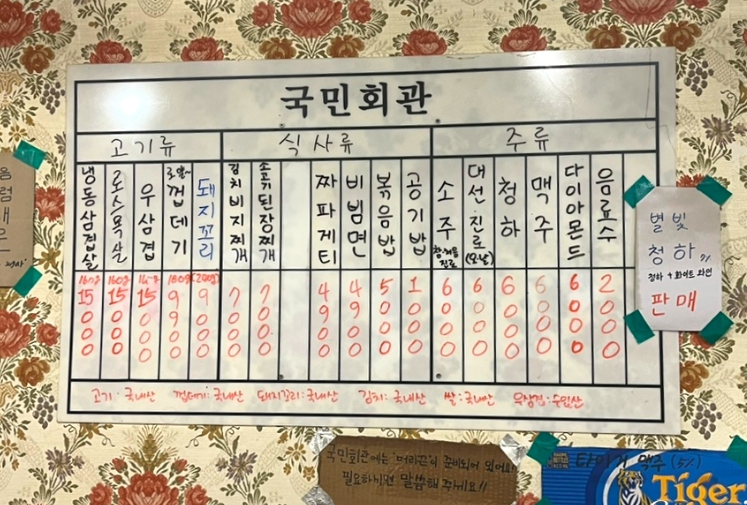 국민회관
고기류
식사류
주류
냉동삼겹살 160g 15000
로스목살 160g 15000
우삼겹 15000
껍데기 180g 9900
돼지꼬리 (200g) 9000
김치비지찌개 7000
소고기된장찌개 7000
짜파게티 4900
비빔면 4900
볶음밥 5000
공기밥 1000
소주 참이슬 진로 6000
대선·진로 6000
청하 6000
맥주 6000
다이아몬드 6000
음료수 2000
고기: 국내산 껍데기: 국내산 돼지꼬리: 국내산 김치: 국내산 쌀: 국내산 우삼겹: 수입산
별빛
청하 〃
청하 + 화이트 와인
판매
국민회관에는 머리끈이 준비되어 있어요!
필요하시면 말씀해주세요!!
타이거 맥주 (5%)
Tiger